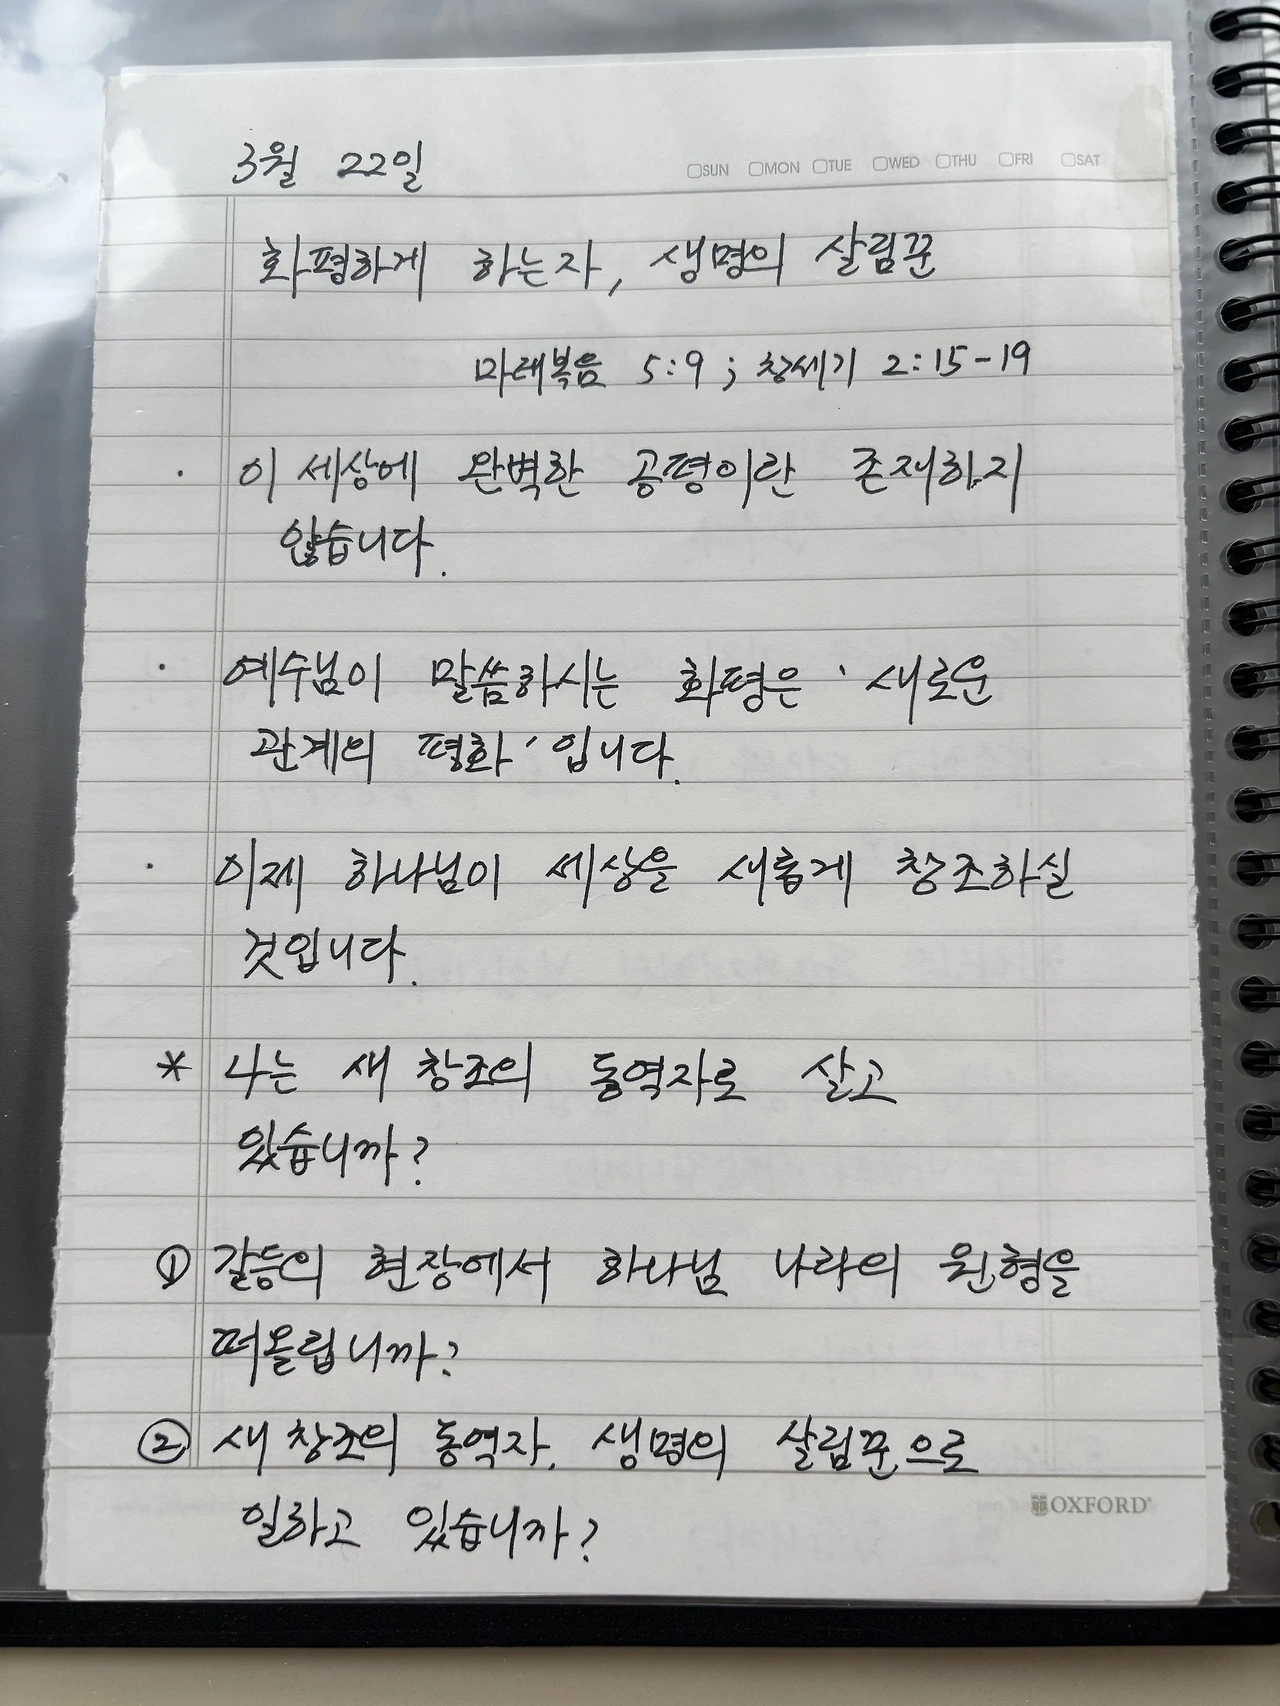 3월 22일
SUN MON TUE WED THU FRI SAT
화평하게 하는자, 생명의 살림꾼
마태복음 5:9 ; 창세기 2:15-19
· 이 세상에 완벽한 공평이란 존재하지
않습니다.
· 예수님이 말씀하시는 화평은 '새로운
관계의 평화' 입니다.
· 이제 하나님이 세상을 새롭게 창조하실
것입니다.
* 나는 새 창조의 동역자로 살고
있습니까?
① 갈등의 현장에서 하나님 나라의 원형을
떠올립니까?
② 새 창조의 동역자. 생명의 살림꾼으로
일하고 있습니까?
OXFORD